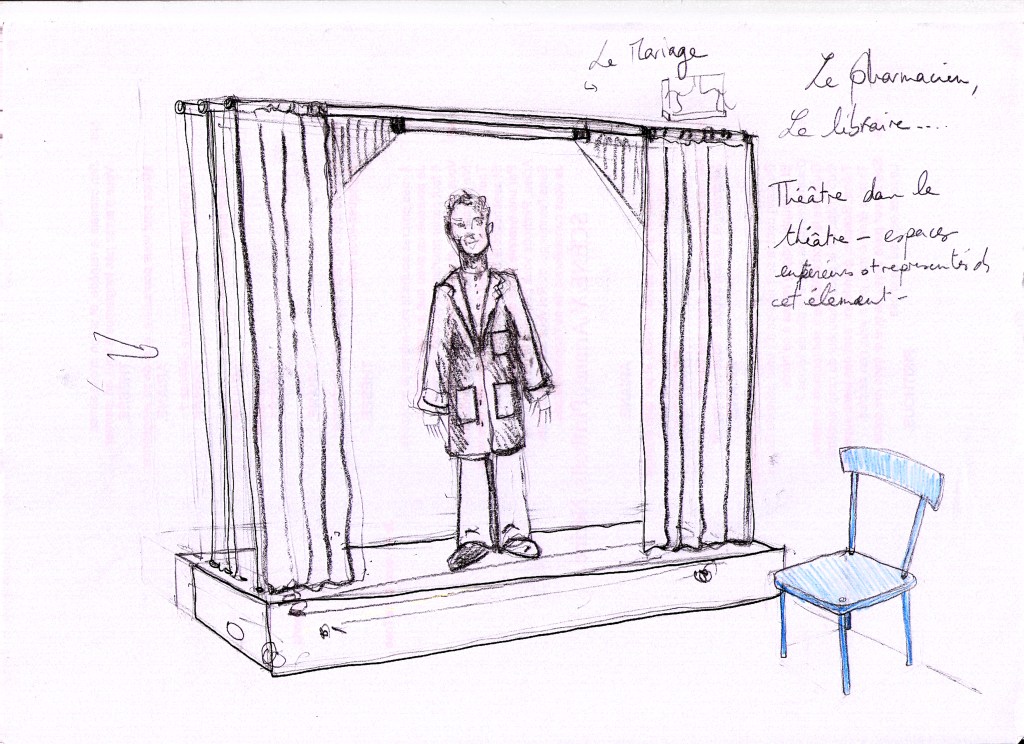 Le Mariage
Le pharmacien,
Le libraire....
Théâtre dans le
théâtre - espaces
et représentés ds
cet élément -